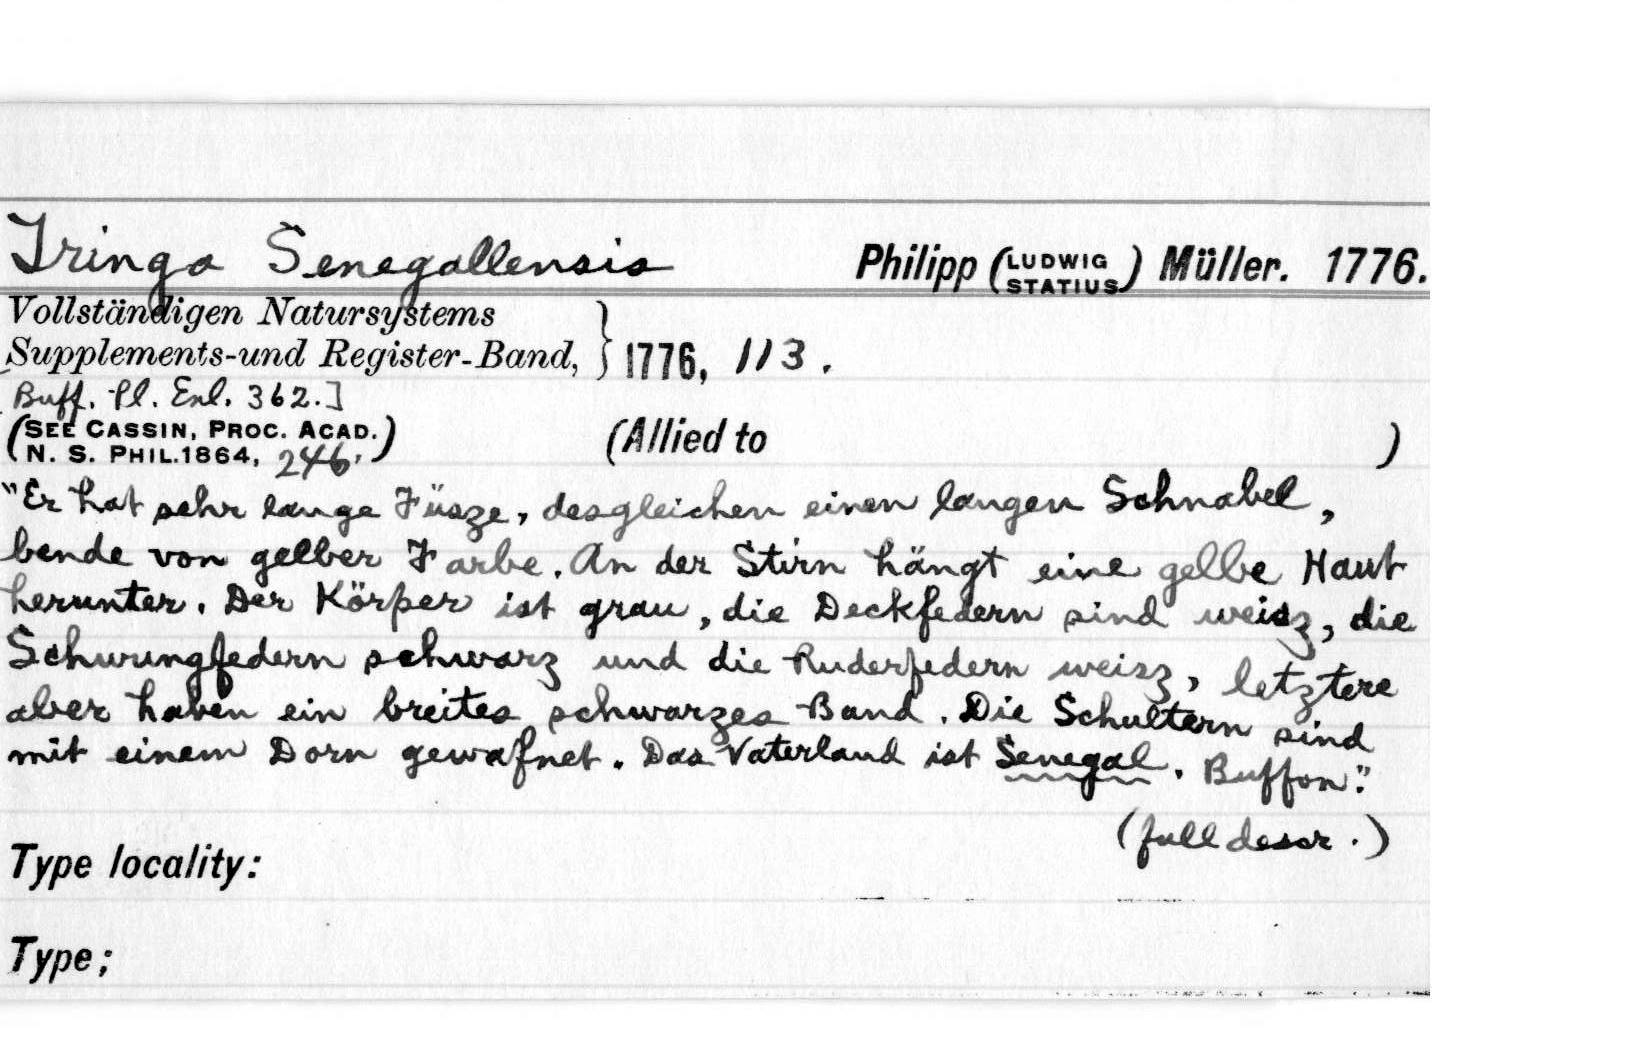 Tringa Senegallensis Philipp (LUDWIG STATIUS) Müller. 1776.
Vollständigen Natursystems
Supplements-und Register-Band, } 1776, 113.
[Buff. Pl. Enl. 362.]
(SEE CASSIN, PROC. ACAD.
N. S. PHIL. 1864, 246.) (Allied to )
"Er hat sehr lange Füsze, desgleichen einen langen Schnabel,
bende von gelber Farbe. An der Stirn hängt eine gelbe Haut
herunter. Der Körper ist grau, die Deckfedern sind weisz, die
Schwungfedern schwarz und die Ruderfedern weisz, letztere
aber haben ein breites schwarzes Band. Die Schultern sind
mit einem Dorn gewafnet. Das Vaterland ist Senegal. Buffon."
(full descr.)
Type locality:
Type;